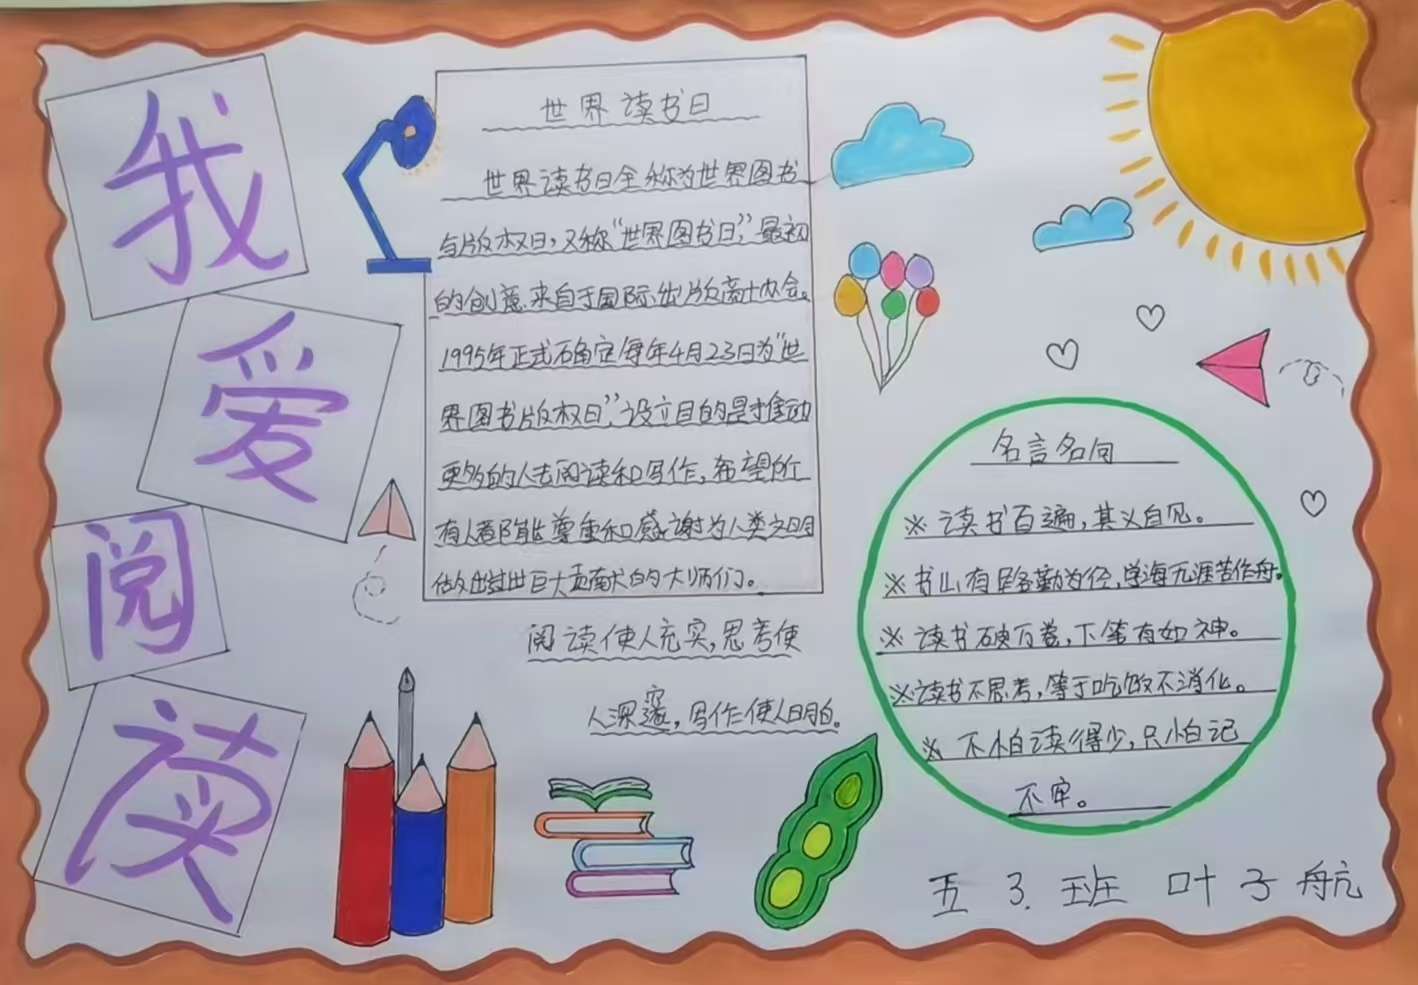 我
爱
阅
读
世界读书日
世界读书日全称为世界图书
与版权日，又称“世界图书日”，最初
的创意来自于国际出版商协会。
1995年正式确定每年4月23日为“世
界图书版权日”，设立目的是推动
更多的人去阅读和写作，希望所
有人都能尊重和感谢为人类文明
做出过巨大贡献的大师们。
阅读使人充实，思考使
人深邃，写作使人明白。
名言名句
※ 读书百遍，其义自见。
※ 书山有路勤为径，学海无涯苦作舟。
※ 读书破万卷，下笔有如神。
※读书不思考，等于吃饭不消化。
※ 不怕读得少，只怕记
不牢。
五 3. 班 叶子航